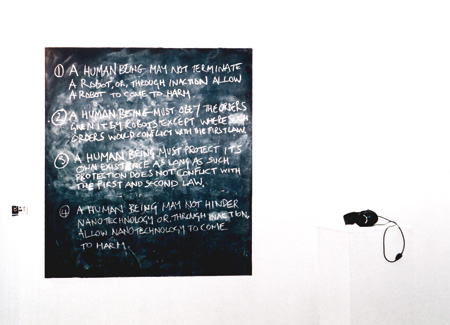 ① A HUMAN BEING MAY NOT TERMINATE
A ROBOT, OR, THROUGH INACTION ALLOW
A ROBOT TO COME TO HARM.
② A HUMAN BEING MUST OBEY THE ORDERS
GIVEN IT BY ROBOTS EXCEPT WHERE SUCH
ORDERS WOULD CONFLICT WITH THE FIRST LAW.
③ A HUMAN BEING MUST PROTECT ITS
OWN EXISTENCE AS LONG AS SUCH
PROTECTION DOES NOT CONFLICT WITH
THE FIRST AND SECOND LAW.
④ A HUMAN BEING MAY NOT HINDER
NANOTECHNOLOGY OR, THROUGH INACTION,
ALLOW NANOTECHNOLOGY TO COME
TO HARM.